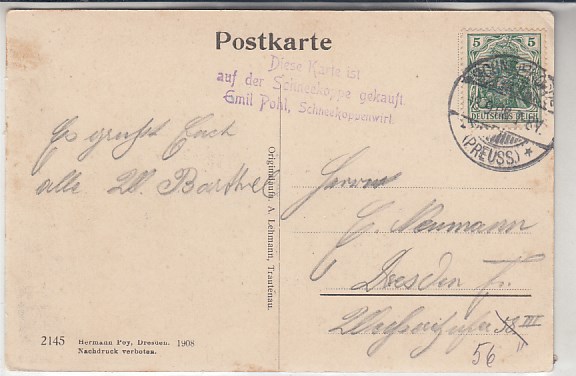 Postkarte
Diese Karte ist
auf der Schneekoppe gekauft
Emil Pohl, Schneekoppenwirt.
5 5
DEUTSCHES REICH
(PREUSS.) *
Es grüßt Euch
alle W. Barthel
Originalaufn. A. Lehmann, Trautenau.
Herrn
E. Neumann
Dresden Fr.
58 III
56 II
2145 Hermann Poy, Dresden. 1908
Nachdruck verboten.